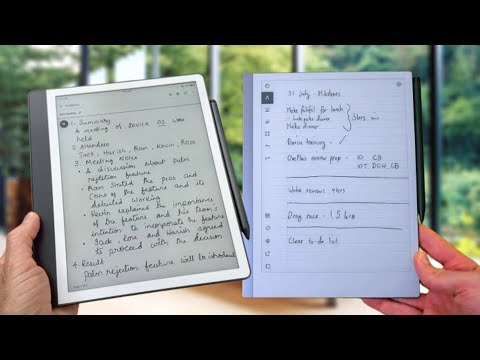 1. Summary
A meeting of Device 03 was
held
2. Attendees
Jack, Harish, Ram, Kevin, Rose
3. Meeting Notes
A discussion about palm
rejection feature
Ram stated the pros and
cons of the feature and its
detailed working
Kevin explained the importance
of the feature and his team's
intention to incorporate the feature
Jack, Rose and Harish agreed
to proceed with the decision
4. Result
Palm rejection feature will be introduced
31 July - Milestones
Make falafel for lunch
Make dinner
Revise training -
review prep - 10: CB
Write reviews 4 hrs
Drag race - 1.5 hrs
Clear to-do list